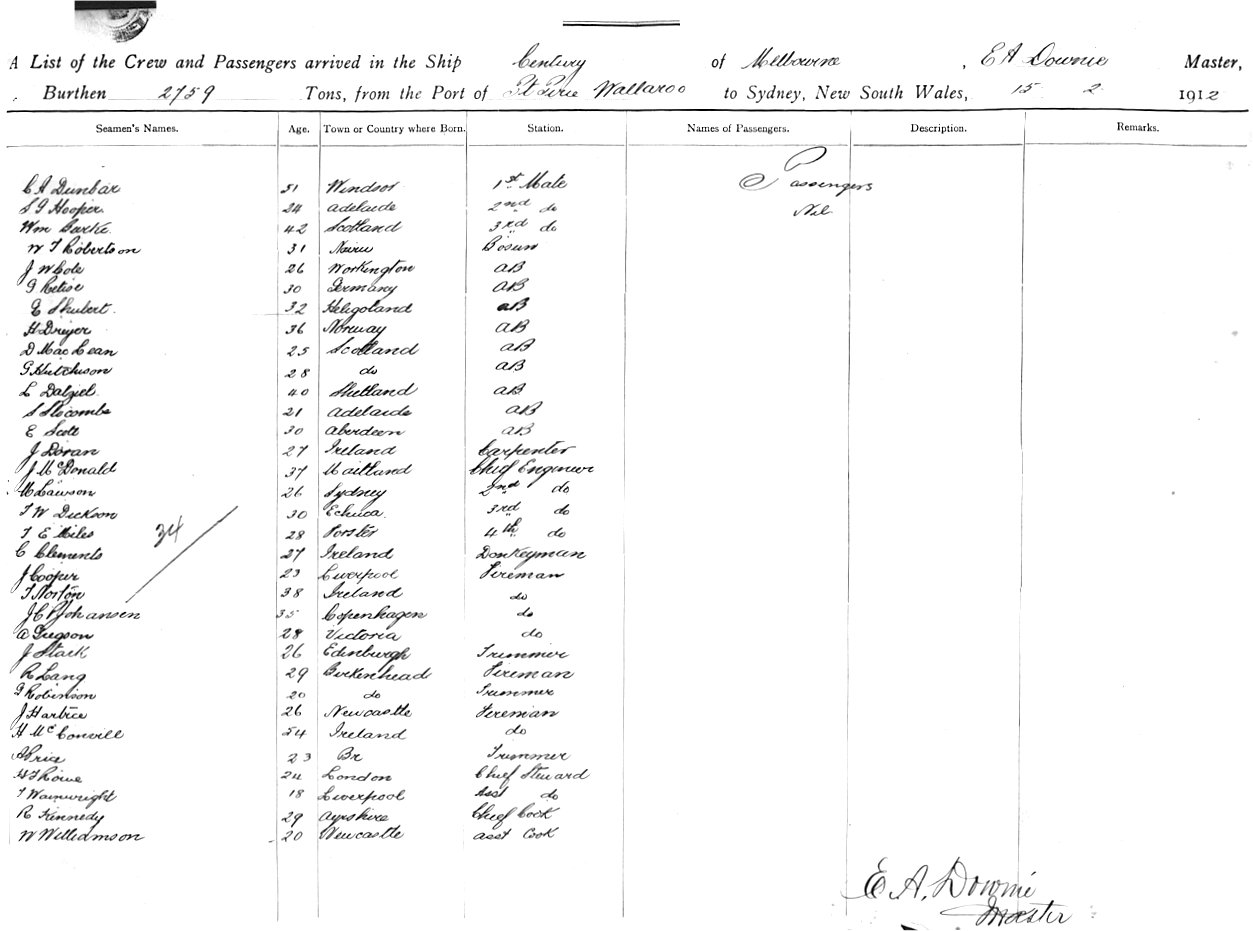 A List of the Crew and Passengers arrived in the Ship Century of Melbourne, E A Downie Master,
Burthen 2759 Tons, from the Port of Pt Pirie Wallaroo to Sydney, New South Wales, 15 2 1912
Seamen's Names. Age. Town or Country where Born. Station. Names of Passengers. Description. Remarks.
C A Dunbar 51 Windsor 1st Mate Passengers
S G Hooper 24 Adelaide 2nd do Nil
Wm Burke 42 Scotland 3rd do
W T Robertson 31 Nairn Bosun
J W Cole 26 Workington AB
G 30 Germany AB
E Shubert 32 Heligoland AB
H Dreyer 36 Norway AB
D MacLean 25 Scotland AB
G Hutchison 28 do AB
L Dalziel 40 Shetland AB
S Slocombe 21 Adelaide AB
E Scott 30 Aberdeen AB
J Doran 27 Ireland Carpenter
J McDonald 37 Maitland Chief Engineer
M Lawson 26 Sydney 2nd do
T W Dickson 30 Echuca 3rd do
T E Miles 28 Forster 4th do
34
C Clements 27 Ireland Donkeyman
J Cooper 23 Liverpool Fireman
T Norton 38 Ireland do
J C P Johansen 35 Copenhagen do
A Gregson 28 Victoria do
J Stark 26 Edinburgh Trimmer
R Lang 29 Birkenhead Fireman
G Robinson 20 do Trimmer
J Hartree 26 Newcastle Fireman
H McConvill 54 Ireland do
A Price 23 Br Trimmer
H T Rowe 24 London Chief Steward
T Wainwright 18 Liverpool Asst do
R Kennedy 29 Ayrshire Chief Cook
W Williamson 20 Newcastle Asst Cook
E A. Downie
Master